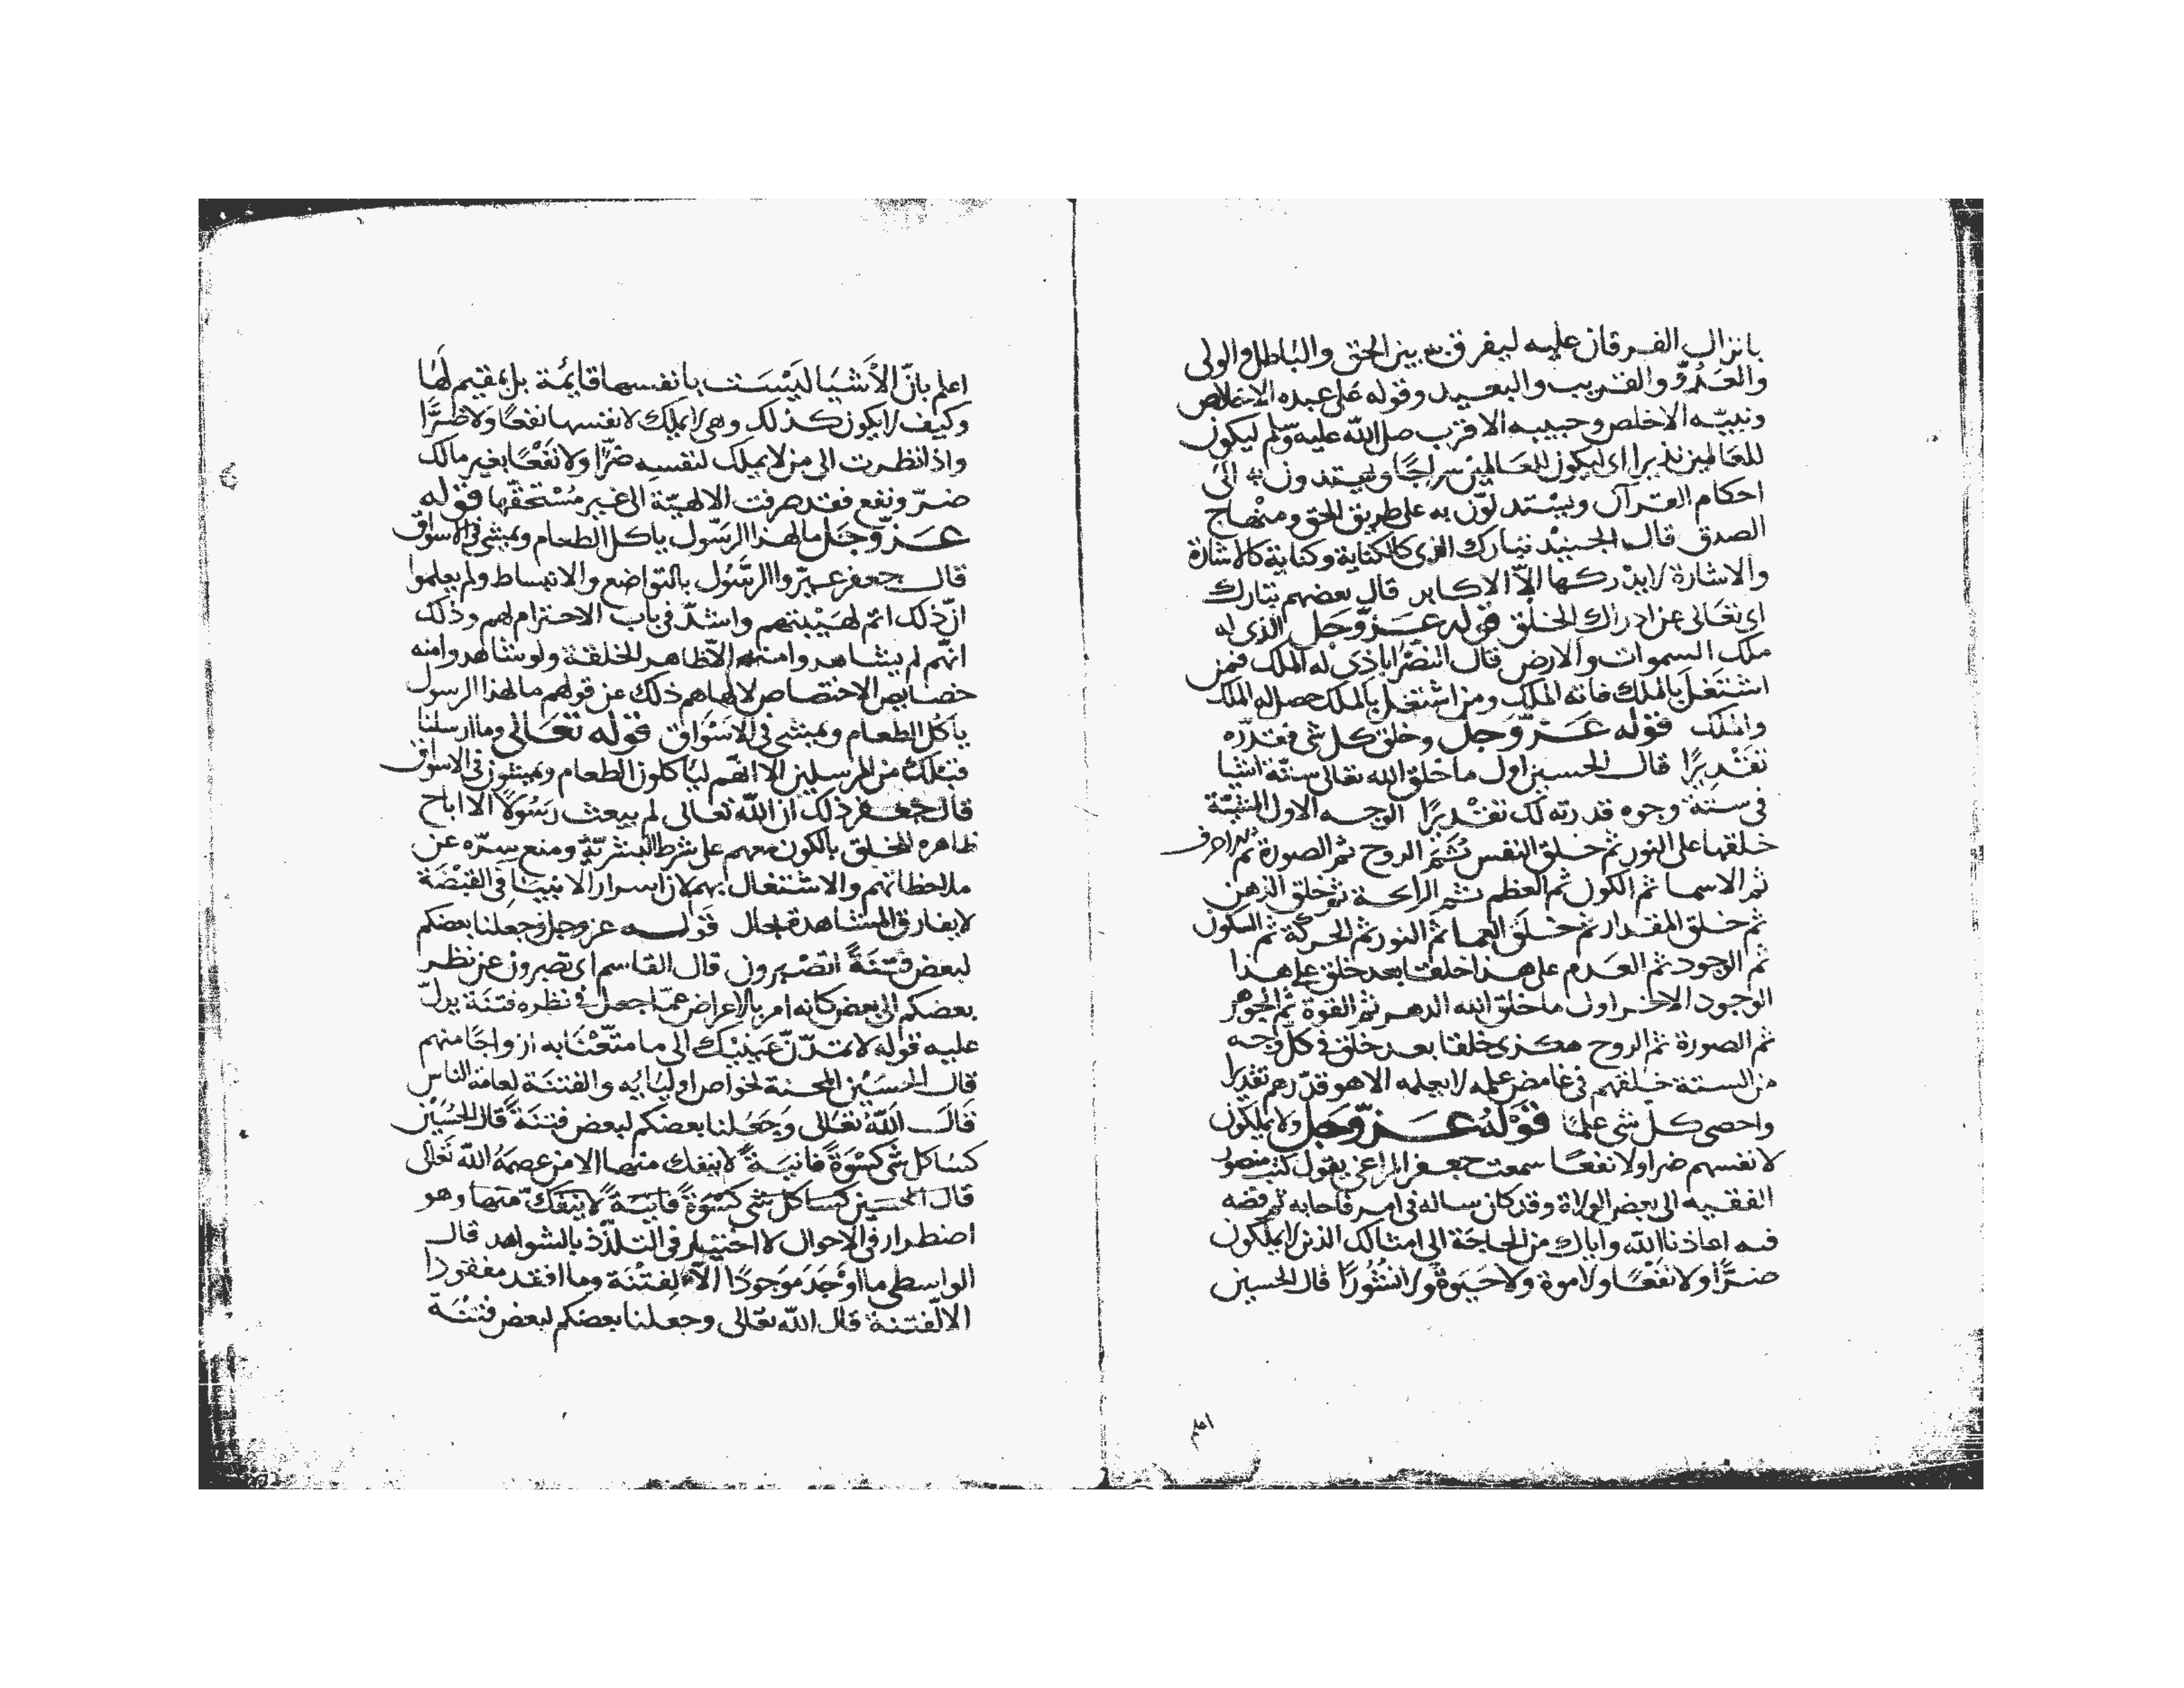 بانزال الفرقان عليه ليفرق به بين الحق والباطل والولى
والعَدُوّ والقريب والبعيد وقوله على عبده الاخلاص
ونبيّه الاخلص وحبيبه الاقرب صلى الله عليه وسلم ليكون
للعالمين نذيرا اى ليكون للعالمين سراجًا ويهتدون به الى
احكام القرآن ويستدلّون به على طريق الحق ومنهاج
الصدق قال الجنيد تبارك الذى كالكناية وكناية كالاشارة
والاشارة لا يدركها الاّ الاكابر قال بعضهم تبارك
اى تعالى عن ادراك الخلق قوله عزّ وجل الذى له
ملك السموات والارض قال النصراباذى له الملك فمن
اشتغل بالملك فاته الملك ومن اشتغل بالملك حصل له الملك
والملك قوله عَزّ وّجل وخلق كل شى فقدّره
تقديرًا قال الحسين اول ما خلق الله تعالى ستّة اشيا
فى ستة وجوه قدرته لك تقديرًا الوجه الاول المشيّة
خلقها على النور ثم خلق النفس ثُمّ الروح ثم الصورة ثم الاحرف
ثم الاسما ثم الكون ثم العظم ثم الرائحة ثم خلق الذهن
ثم خلق المقدار ثم خلق العما ثم النور ثم الحركة ثم السكون
ثم الوجود ثم العدم على هذا خلقا بعد خلق على هذا
الوجود الاخر اول ما خلق الله الدهر ثم القوة ثم الجوهر
ثم الصورة ثم الروح هكذى خلقا بعد خلق فى كل وجه
من الستة خلقهم فى غامض علمه لا يعلمه الا هو قدّرهم تقديرا
واحصى كل شى علمًا قوله عزّ وّجل ولا يملكون
لانفسهم ضرا ولا نفعًا سمعت جعفر المراغى يقول كتب منصور
الفقيه الى بعض الولاة وقد كان ساله فى امر فاجابه ثم رفضه
فيه اعاذنا الله واياك من الحاجة الى امثالك الذين لا يملكون
ضرًّا ولا نفعًا ولا موة ولا حيوة ولا نشورًا قال الحسين
اعلم
اعلم بانّ الأشيا ليست بانفسها قايمة بل بمقيم لها
وكيف لا يكون كذلك وهى لا يملك لانفسها نفعًا ولا ضرًّا
واذا نظرت الى من لا يملك لنفسه ضرًّا ولا نفعًا بغير مالك
ضرّ ونفع فقد صرفت الالهيّة الى غير مُستحقّها قوله
عزّ وجَل ما لهذا الرسّول ياكل الطعام ويمشى فى الاسواق
قال جعفر عيّروا الرسُول بالتواضع والانبساط ولم يعلموا
انّ ذلك اتم لهيبتهم واشدّ فى باب الاحترام لهم وذلك
انهّم لم يشاهدوا منه الاّ ظاهر الخلقة ولو شاهدوا منه
خصايص الاختصاص لالهاهم ذلك عن قولهم ما لهذا الرسول
يأكُل الطعام ويمشى فى الاسواق قوله تعالى وما ارسلنا
قبلك من المرسلين الا انهم ليأكلون الطعام ويمشون فى الاسواق
قال جعفر ذلك ان الله تعالى لم يبعث رسُولاً الا اباح
ظاهره للخلق بالكون معهم على شرط البشريّة ومنع سرّه عن
ملاحظاتهم والاشتغال بهم لان اسرار الانبيا فى القبضة
لا يفارق المشاهدة بحال قوله عز وجل وجعلنا بعضكم
لبعض فتنةً اتصبرون قال القاسم اى تصبرون عن نظر
بعضكم الى بعض كانه امر بالاعراض عمّا جعل فى نظره فتنة يدلّ
عليه قوله لا تمدّنّ عينيك الى ما متّعنا به ازواجًا منهم
قال الحسين المحنة لخواص اوليايه والفتنة لعامة الناس
قال الله تعالى وجعلنا بعضكم لبعض فتنة قال الحسين
كسا كل شى كسوةً فانيةً لا ينفك منها الا من عصمهُ الله تعالى
قال الحسين كسا كل شى كسوةً فانيةً لا ينفكّ منها وهو
اضطرار فى الاحوال لا اختيار فى التلذّذ بالشواهد قال
الواسطى ما اوجَدَ موجودًا الاّ لفتنة وما افقد مفقودا
الا لفتنة قال الله تعالى وجعلنا بعضكم لبعض فتنة